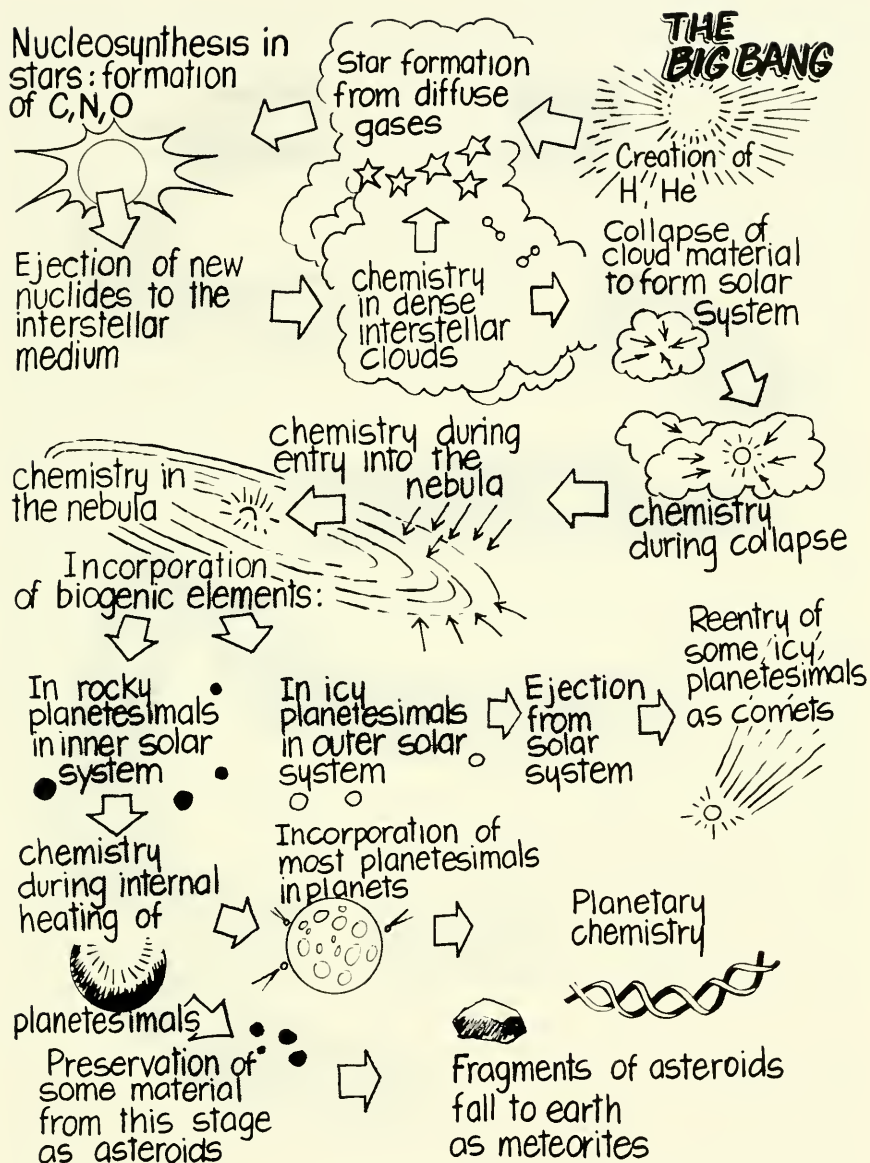 THE
BIG BANG
Creation of
H, He
Star formation
from diffuse
gases
Nucleosynthesis in
stars: formation
of C,N,O
Ejection of new
nuclides to the
interstellar
medium
chemistry
in dense
interstellar
clouds
Collapse of
cloud material
to form solar
System
chemistry
during collapse
chemistry during
entry into the
nebula
chemistry in
the nebula
Incorporation
of biogenic elements:
In rocky
planetesimals
in inner solar
system
In icy
planetesimals
in outer solar
system
Ejection
from
solar
system
Reentry of
some 'icy'
planetesimals
as comets
chemistry
during internal
heating of
planetesimals
Incorporation of
most planetesimals
in planets
Planetary
chemistry
Preservation of
some material
from this stage
as asteroids
Fragments of asteroids
fall to earth
as meteorites